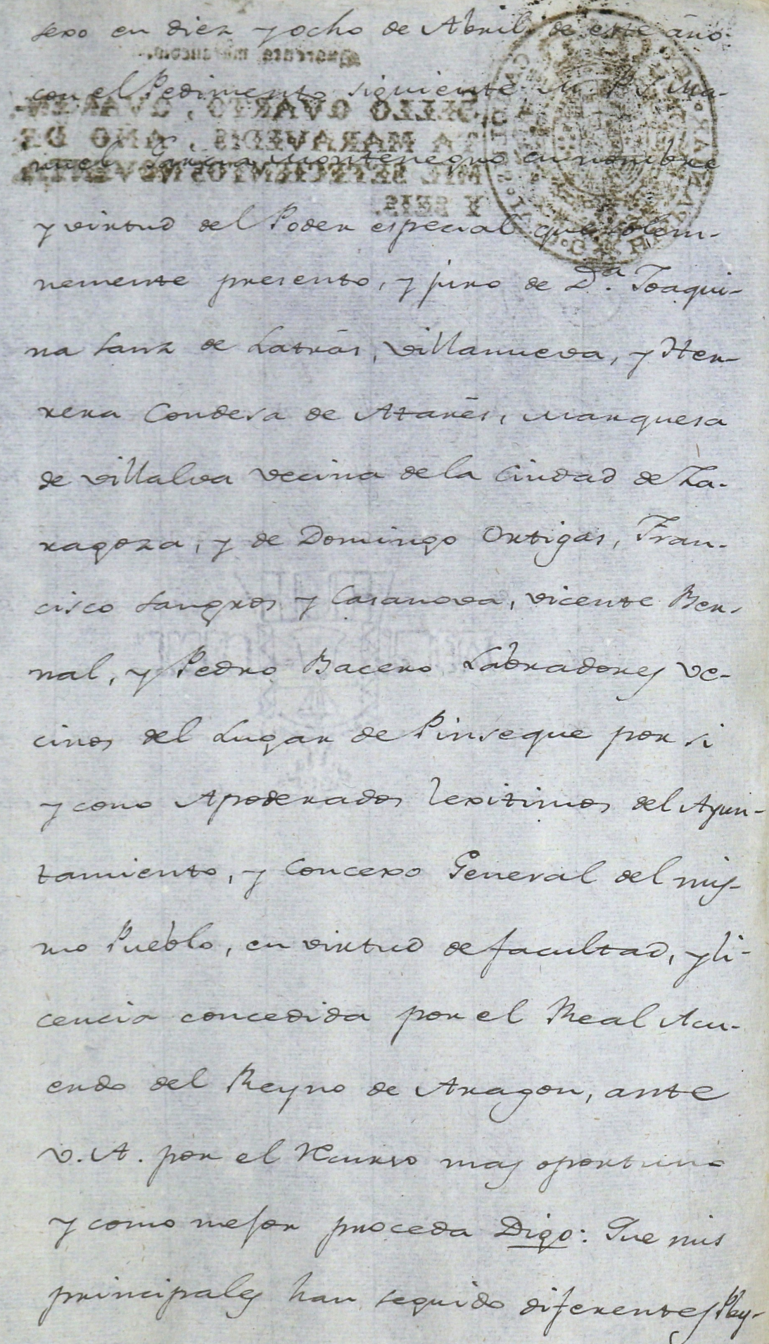 sexo en diez y ocho de Abril de este año
con el Pedimento siguiente M. P. S. Ma-
nuel Montenegro en nombre
y virtud del Poder especial que solem-
nemente presento, y juro de Dª. Joaqui-
na Sanz de Latrás, Villanueva, y Her-
rera Condesa de Atarés, Marquesa
de Villalva vecina de la Ciudad de Za-
ragoza, y de Domingo Ortigas, Fran-
cisco Sangros y Casanova, Vicente Ber-
nal, y Pedro Bacero Labradores ve-
cinos del Lugar de Pinseque por si
y como Apoderados lexitimos del Ayun-
tamiento, y Concexo General del mis-
mo Pueblo, en virtud de facultad, y li-
cencia concedida por el Real Acu-
erdo del Reyno de Aragon, ante
V. A. por el Recurso mas oportuno
y como mejor proceda Digo: Que mis
principales han seguido diferentes Pley-
SELLO QVARTO, QVAREN-
TA MARAVEDIS, AÑO DE
MIL SETECIENTOS NOVENTA
Y SEIS.